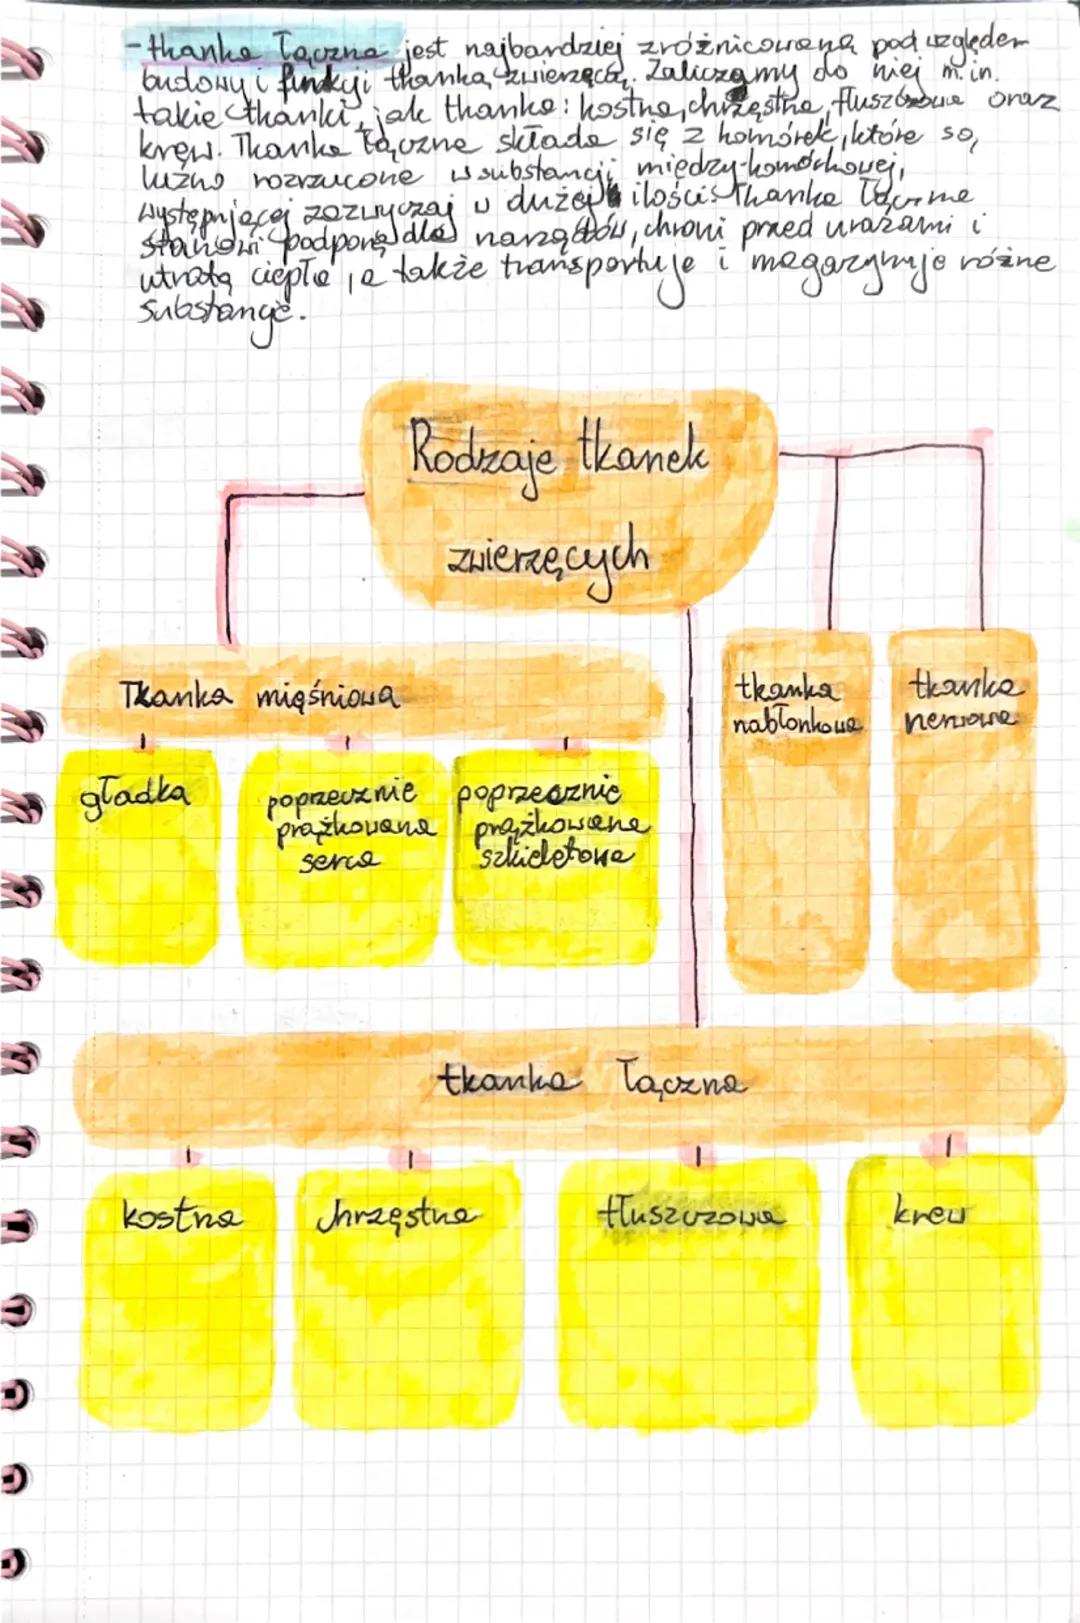 - tkanka łączna jest najbardziej zróżnicowaną pod względem
budowy i funkcji tkanką zwierzęcą. Zaliczamy do niej m.in.
takie tkanki, jak tkanka: kostna, chrzęstna, tłuszczowa oraz
krew. Tkanka łączna składa się z komórek, które są
luźno rozrzucone w substancji międzykomórkowej,
występującej zazwyczaj w dużej ilości. Tkanka łączna
stanowi podporę dla narządów, chroni przed urazami i
utratą ciepła, a także transportuje i magazynuje różne
substancje.
Rodzaje tkanek
zwierzęcych
Tkanka mięśniowa
tkanka
nabłonkowa
tkanka
nerwowa
gładka
poprzecznie
prążkowana
serca
poprzecznie
prążkowana
szkieletowa
tkanka łączna
kostna
chrzęstna
tłuszczowa
krew